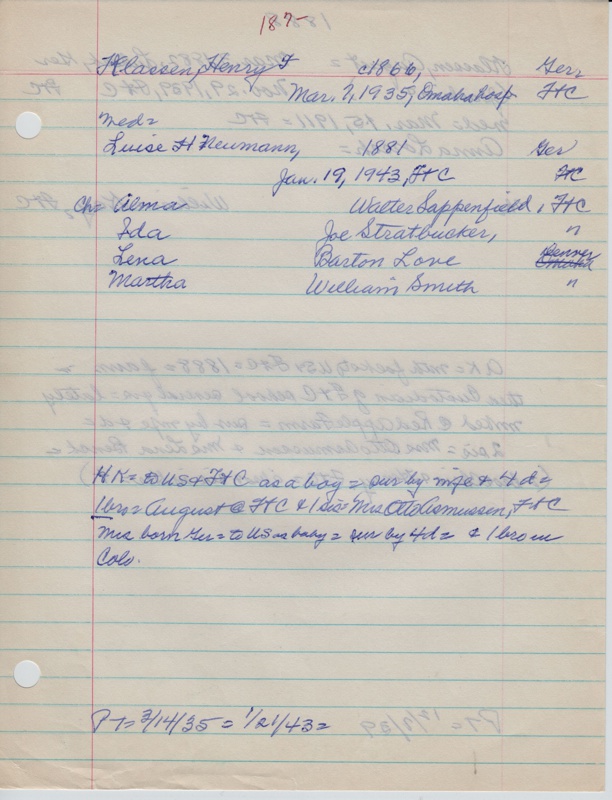 187-
Klassen, Henry F c1866, Ger
Mar. 7, 1935, Omaha hosp FtC
med=
Luise H Neumann, 1881 Ger
Jan. 19, 1943, FtC FtC
Ch= Alma Walter Sappenfield, FtC
Ida Joe Stratbucker, "
Lena Barton Love Denver
Martha William Smith "
HK= to US & FtC as a boy = sur by wife & 4 d=
1 bro= August @ FtC & 1 sis= Mrs Otto Asmussen, FtC
Mrs born Ger= to US as baby= sur by 4d= & 1 bro in
Colo.
PT= 3/14/35= 1/21/43=